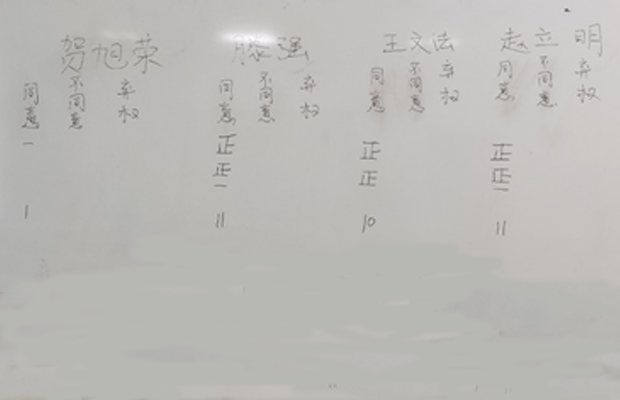 贺旭荣 滕强 王文法 赵立明
同意 不同意 弃权 同意 不同意 弃权 同意 不同意 弃权 同意 不同意 弃权
一 正 正 正
正一 正 正一
1 11 10 11